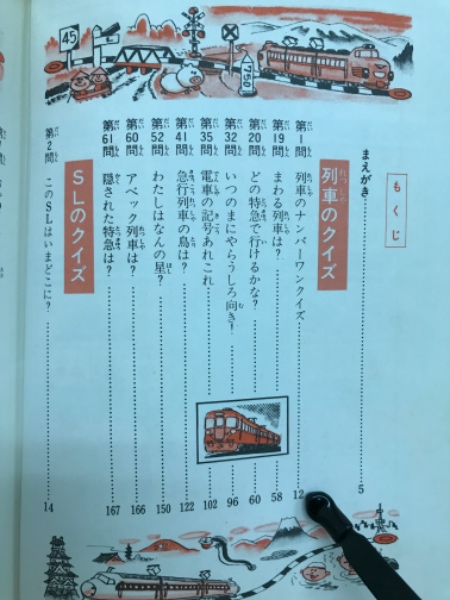 もくじ
まえがき 5
列車のクイズ
第1問 列車のナンバーワンクイズ 12
第19問 まわる列車は? 58
第20問 どの特急で行けるかな? 60
第32問 いつのまにやらうしろ向き! 96
第35問 電車の記号あれこれ 102
第41問 急行列車の鳥は? 122
第52問 わたしはなんの星? 150
第60問 アベック列車は? 166
第61問 隠された特急は? 167
SLのクイズ
第2問 このSLはいまどこに? 14
45
1/50